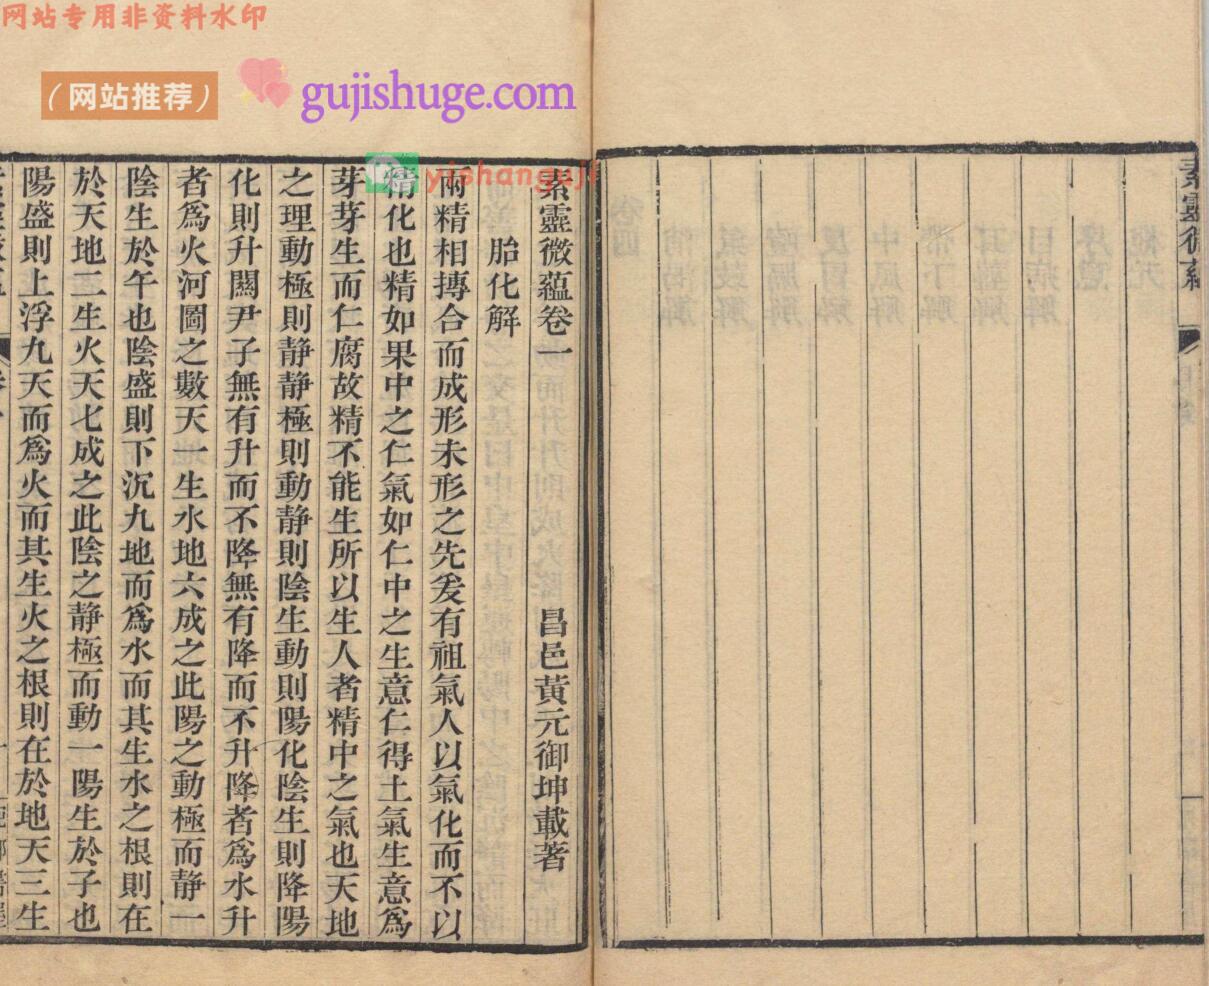 网站专用非资料水印
（网站推荐）
gujishuge.com
yishanguji
素靈微蘊
素靈微蘊卷一
昌邑黃元御坤載著
胎化解
兩精相摶合而成形未形之先爰有祖氣人以氣化而不以
精化也精如果中之仁氣如仁中之生意仁得土氣生意為
芽芽生而仁腐故精不能生所以生人者精中之氣也天地
之理動極則静静極則動静則陰生動則陽化陰生則降陽
化則升關尹子無有升而不降無有降而不升降者為水升
者為火河圖之數天一生水地六成之此陽之動極而静一
陰生於午也陰盛則下沉九地而為水而其生水之根則在
於天地二生火天七成之此陰之静極而動一陽生於子也
陽盛則上浮九天而為火而其生火之根則在於地天三生